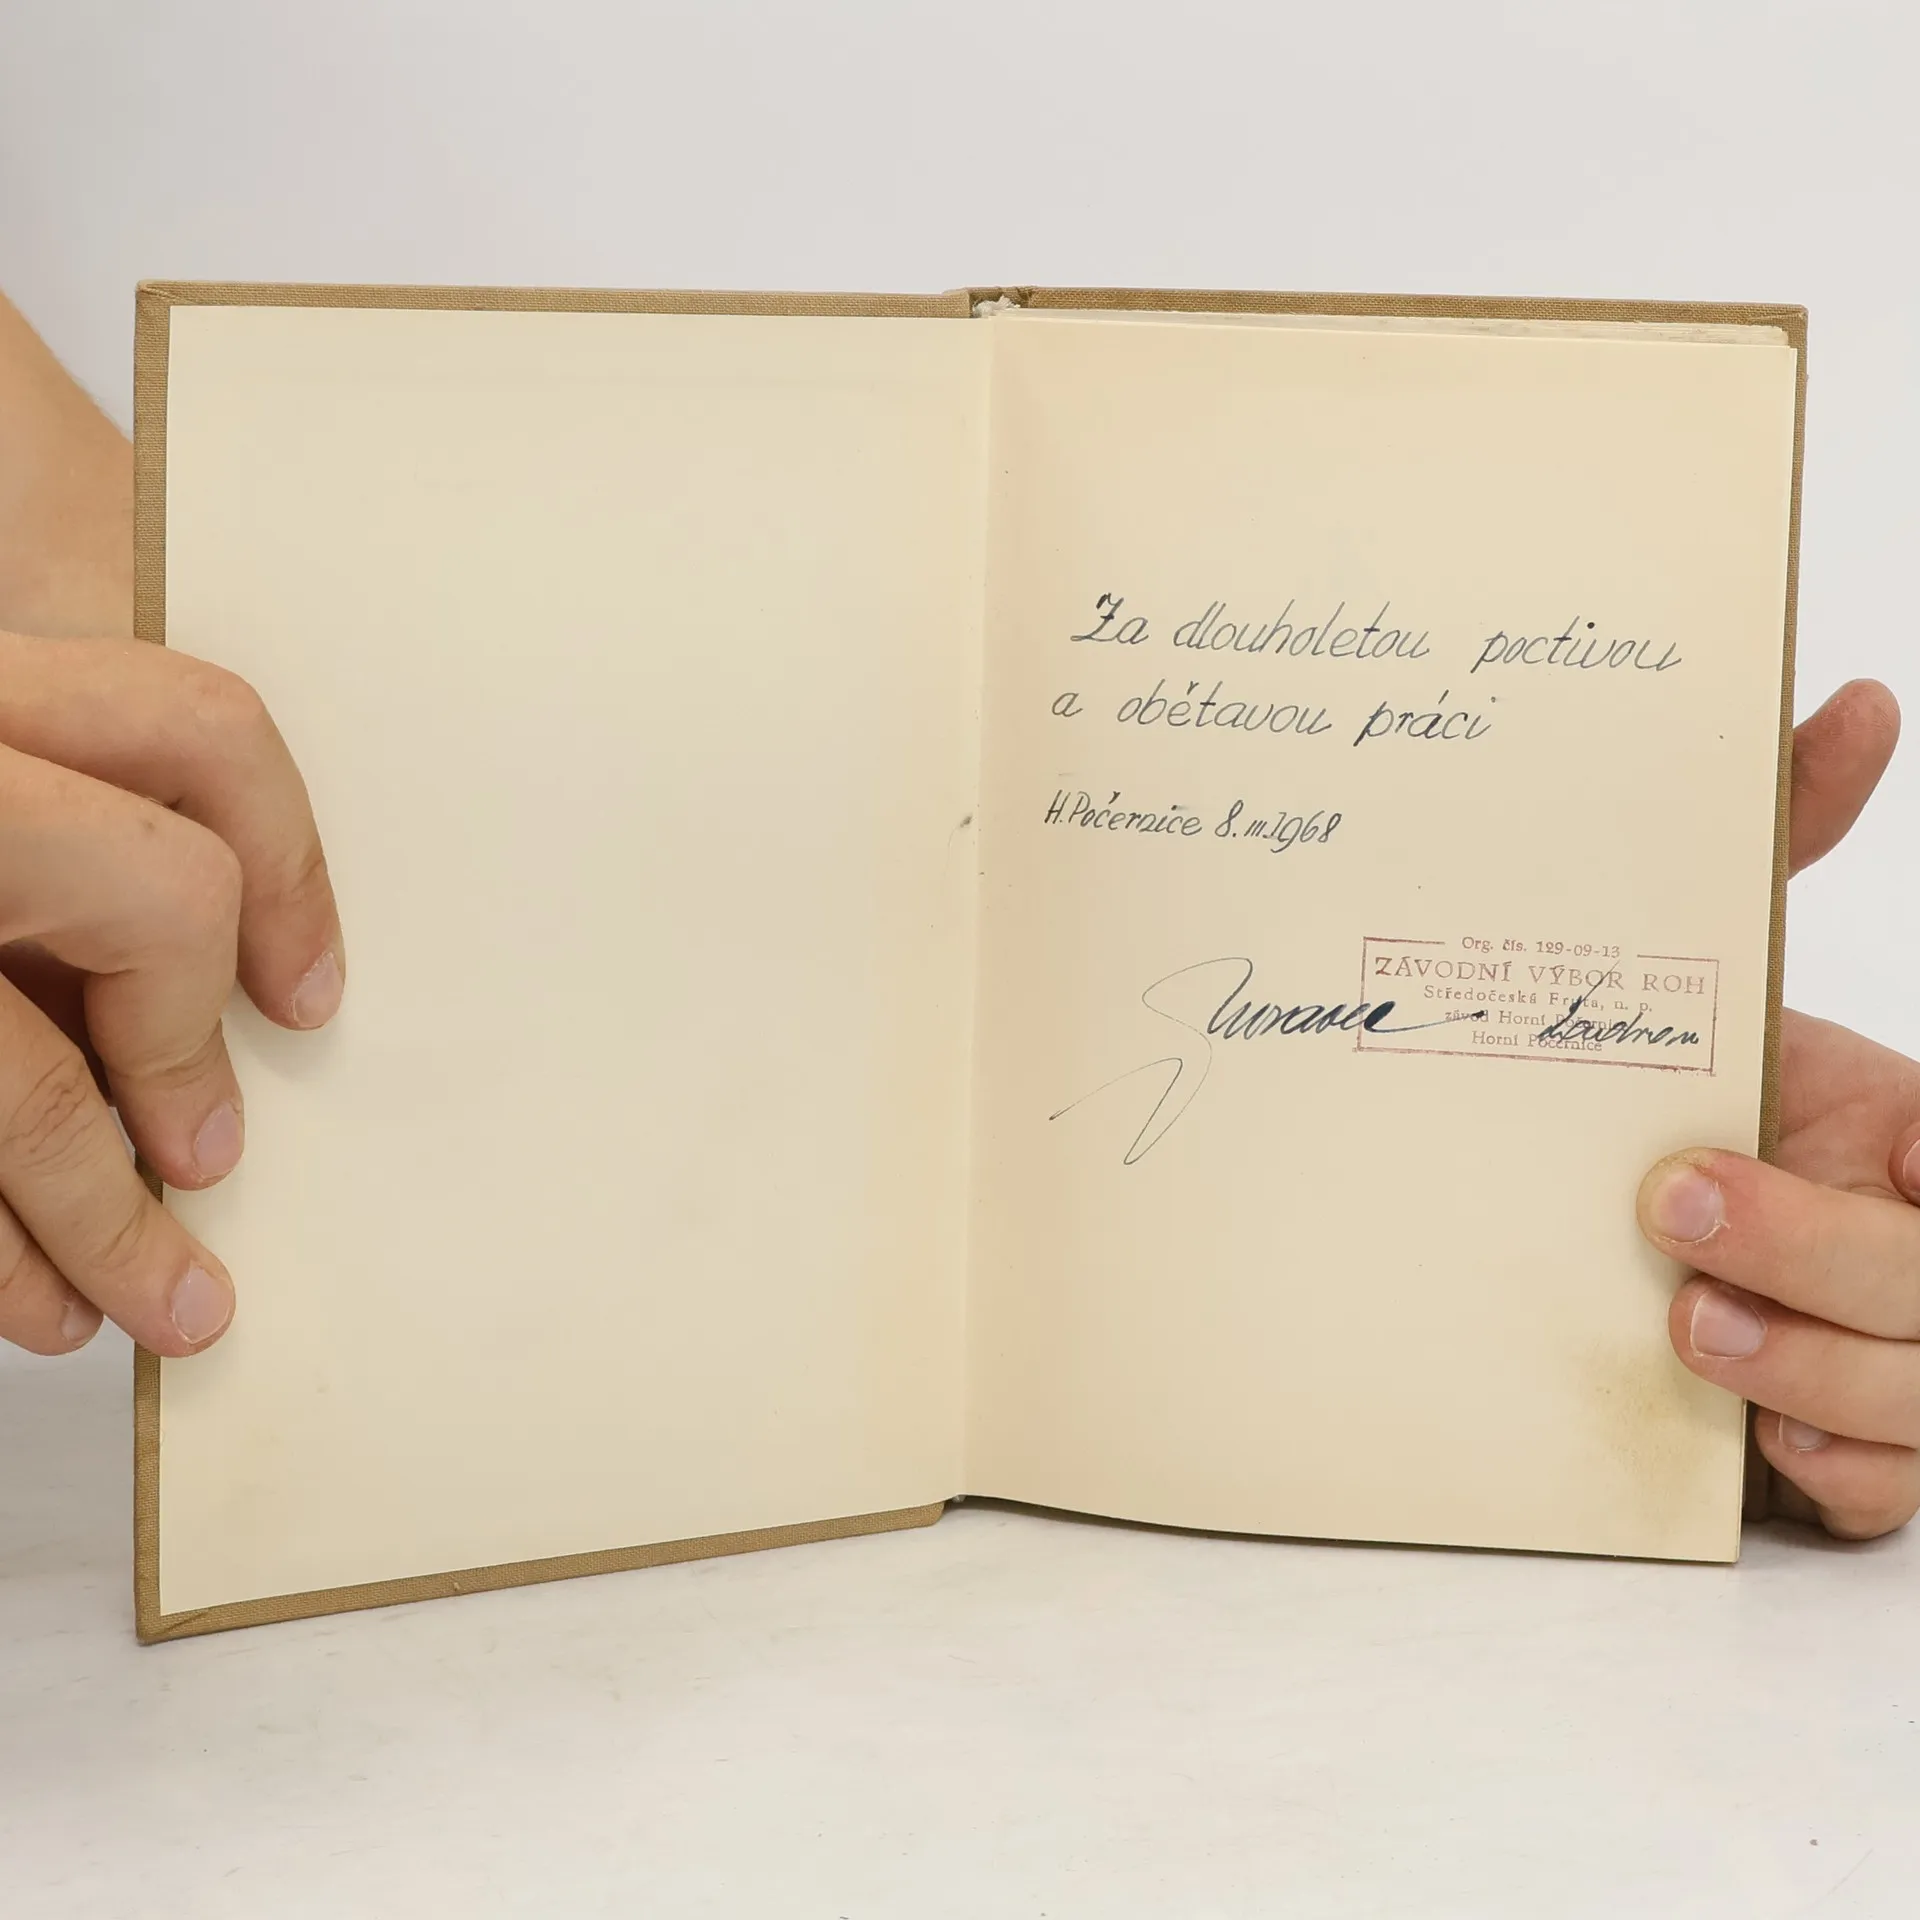 Za dlouholetou poctivou
a obětavou práci
H. Počernice 8. III. 1968
Org. čís. 129-09-13
ZÁVODNÍ VÝBOR ROH
Středočeská Fruta, n. p.
závod Horní Počernice
Horní Počernice